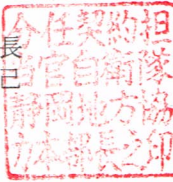 長己
分任契約担
当官自衛隊
静岡地方協
力本部長之印